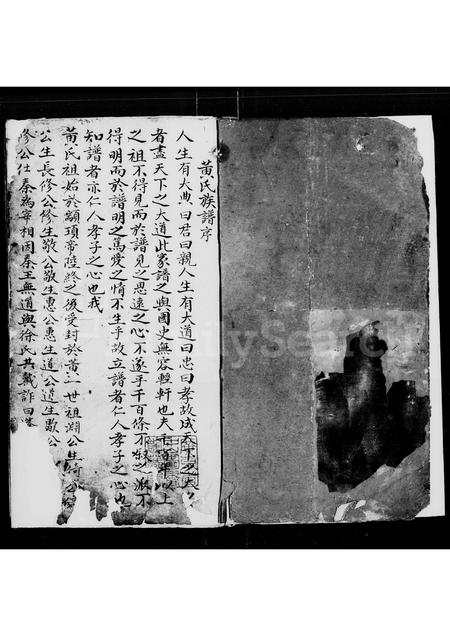 黃氏族譜序
人生有大典曰君曰親人生有大道曰忠曰孝故成天下之大
者盡天下之大道此家譜之與國史無容輕軒也夫千百年以上
之祖不得見而於譜見之思遠之心不遂乎千百條不叙之派不
得明而於譜明之篤愛之情不生乎故立譜者仁人孝子之心也
知譜者亦仁人孝子之心也哉
黃氏祖始於顓頊帝陸終之後受封於黃一世祖淵公生琦公
公生長修公修生敬公敬生惠公惠生道公道生歐公
修公仕秦為宰相因秦王無道與徐氏共戴詐曰
FamilySearch